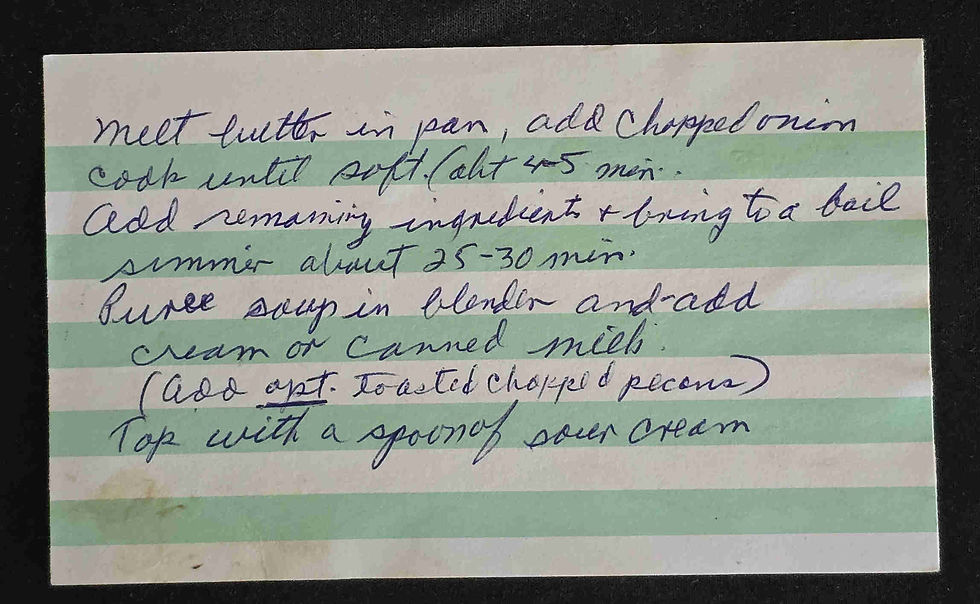 Melt butter in pan, add chopped onion
cook until soft. (abt 4-5 min.
Add remaining ingredients + bring to a boil
simmer about 25-30 min.
Puree soup in blender and add
cream or canned milk.
(add opt. toasted chopped pecans)
Top with a spoon of sour cream